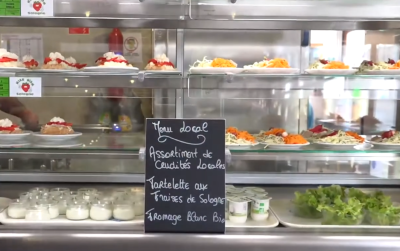 Menu local
Assortiment de
Crudités Locales
Tartelette aux
Fraises de Sologne
Fromage Blanc Bio